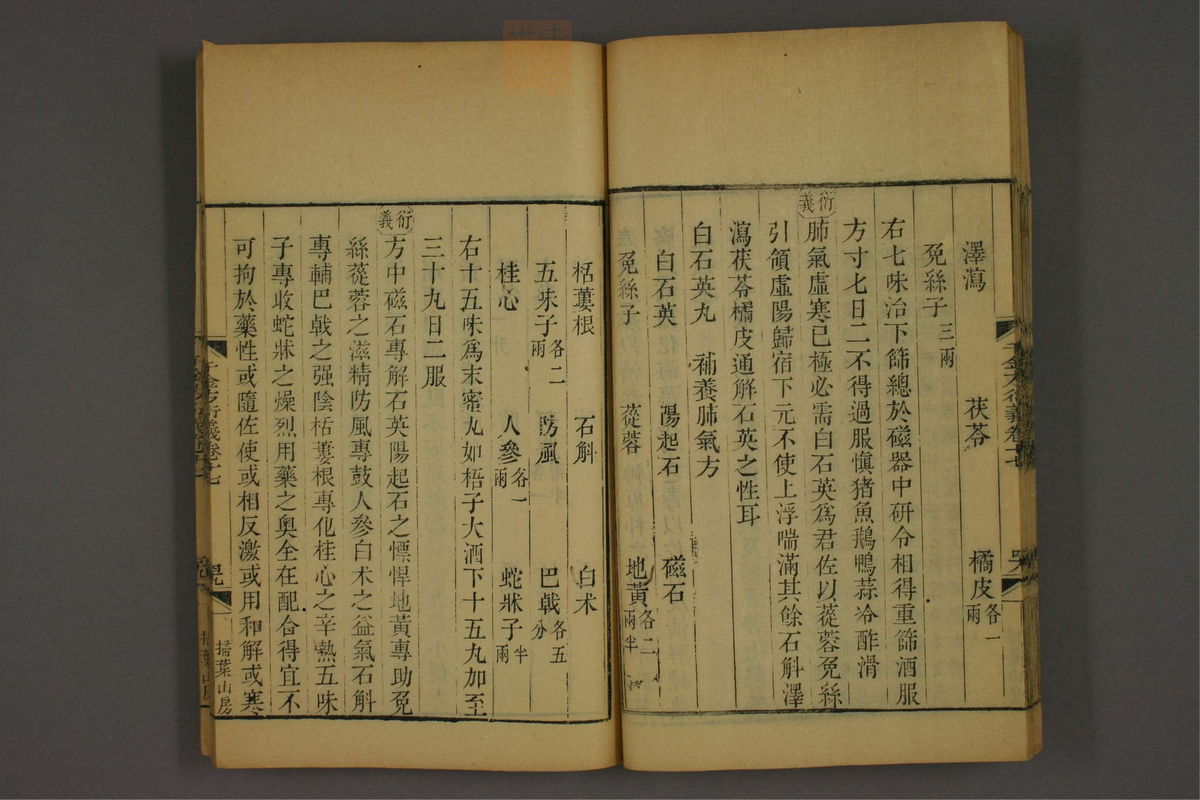 澤瀉 茯苓 橘皮各一兩
兔絲子三兩
右七味治下篩總於磁器中研令相得重篩酒服
方寸七日二不得過服愼猪魚鵝鴨蒜冷酢滑
衍義 肺氣虛寒已極必需白石英爲君佐以蓯蓉兔絲
引領虛陽歸宿下元不使上浮喘滿其餘石斛澤
瀉茯苓橘皮通解石英之性耳
白石英丸 補養肺氣方
白石英 陽起石 磁石
兔絲子 蓯蓉 地黃各二兩半
栝蔞根 石斛 白术
五味子各二兩 防風 巴戟各五分
桂心 人參各一兩 蛇牀子半兩
右十五味爲末蜜丸如梧子大酒下十五丸加至
三十九日二服
衍義 方中磁石專解石英陽起石之慓悍地黃專助兔
絲蓯蓉之滋精防風專鼓人參白术之益氣石斛
專輔巴戟之强陰栝蔞根專化桂心之辛熱五味
子專收蛇牀之燥烈用藥之奧全在配合得宜不
可拘於藥性或隨佐使或相反激或用和解或寒
千金方衍義卷十七
掃葉山房